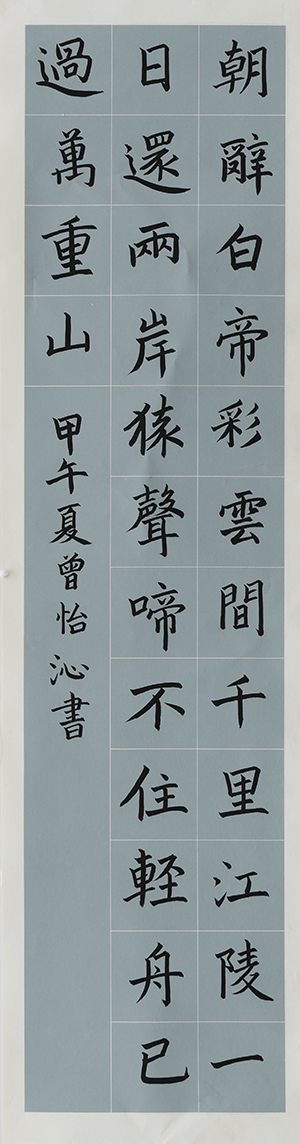 朝辭白帝彩雲間千里江陵一
日還兩岸猿聲啼不住輕舟已
過萬重山
甲午夏曾怡沁書